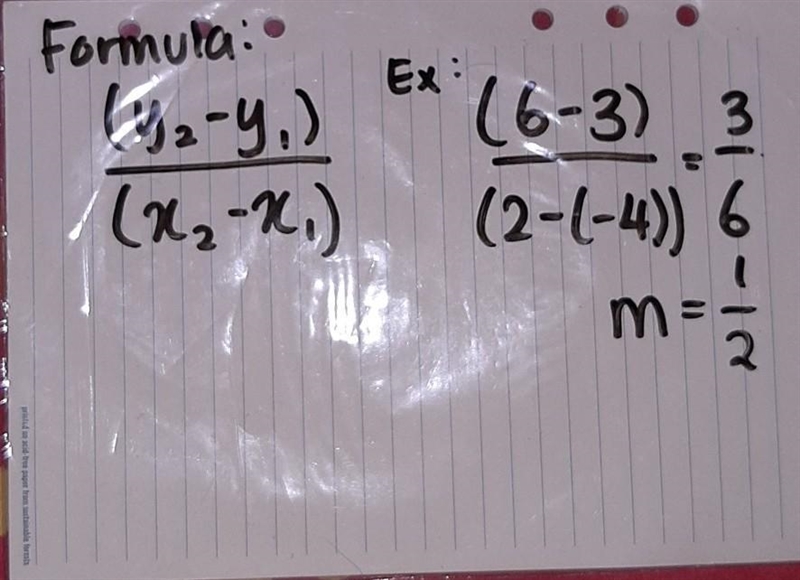 Formula:
(y₂-y₁)
(x₂-x₁)
Ex:
(6-3)
(2-(-4))
= 3
6
m = 1
2
printed on acid-free paper from sustainable forests